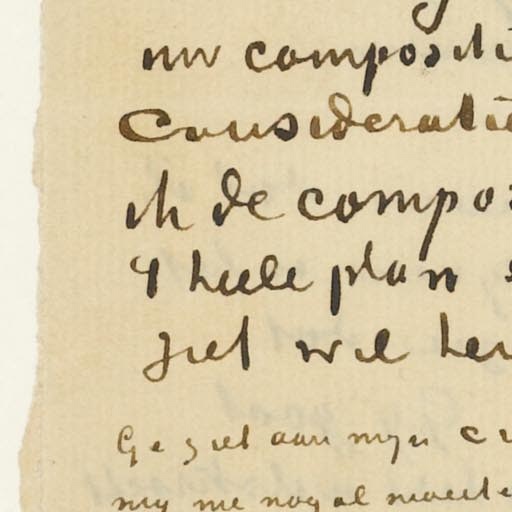 nw compositi
Consideratie
ik de compos
't heele plan
ziet wel her
Ge ziet aan mijn c
mij me nog al moeite